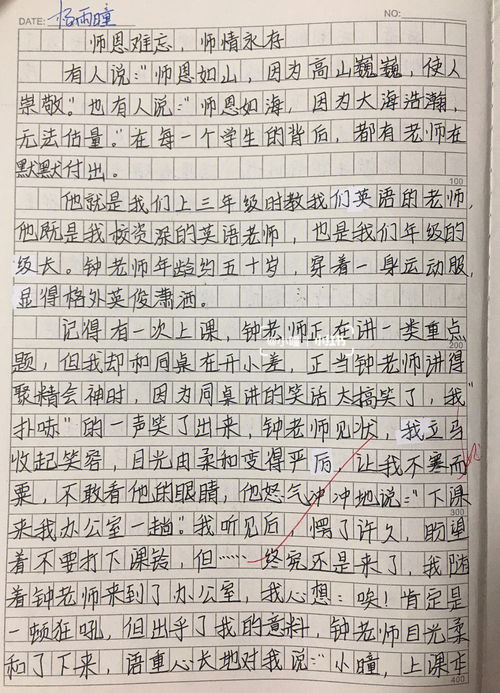 DATE: 杨雨瞳 NO:
师恩难忘，师情永存
有人说："师恩如山，因为高山巍巍，使人
崇敬。"也有人说："师恩如海，因为大海浩瀚，
无法估量。"在每一个学生的背后，都有老师在
默默付出。
100
他就是我们上三年级时教我们英语的老师，
他既是我校资深的英语老师，也是我们年级的
级长。钟老师年龄约五十岁，穿着一身运动服，
显得格外英俊潇洒。
记得有一次上课，钟老师正在讲一类重点
200
题，但我却和同桌在开小差，正当钟老师讲得
聚精会神时，因为同桌讲的笑话太搞笑了，我"
扑哧"的一声笑了出来，钟老师见状，我立马
收起笑容，目光由柔和变得严后，让我不寒而
粟，不敢看他的眼睛，他怒气冲冲地说："下课
300
来我办公室一趟"。我听见后，愣了许久，盼望
着不要打下课铃，但……终究还是来了，我随
着钟老师来到了办公室，我心想：唉！肯定是
一顿狂吼，但出乎了我的意料，钟老师目光柔
和了下来，语重心长地对我说："小瞳，上课本
400